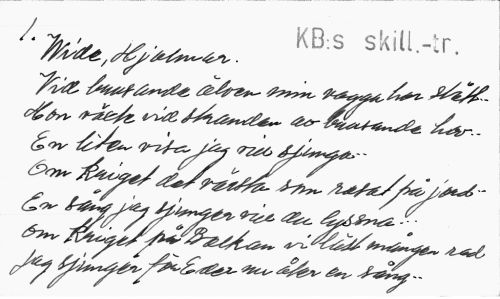 1.
KB:s skill.-tr.
Wide, Hjalmar.
Vid brusande älven min vagga har stått..
Hon växte vid stranden av brusande hav..
En liten visa jag vill sjunga..
Om kriget det värsta som rasat på jord..
En sång jag sjunger vill du lyssna...
Om kriget på Balkan vi läst mången rad
Jag sjunger för Eder nu åter en sång..